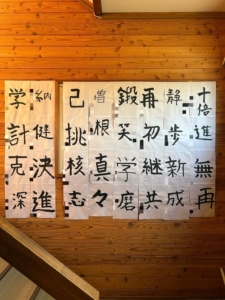 十倍進無再
静歩新成
再初継共
鍛笑学磨
根真々
己挑核志
納健決進
学計克深